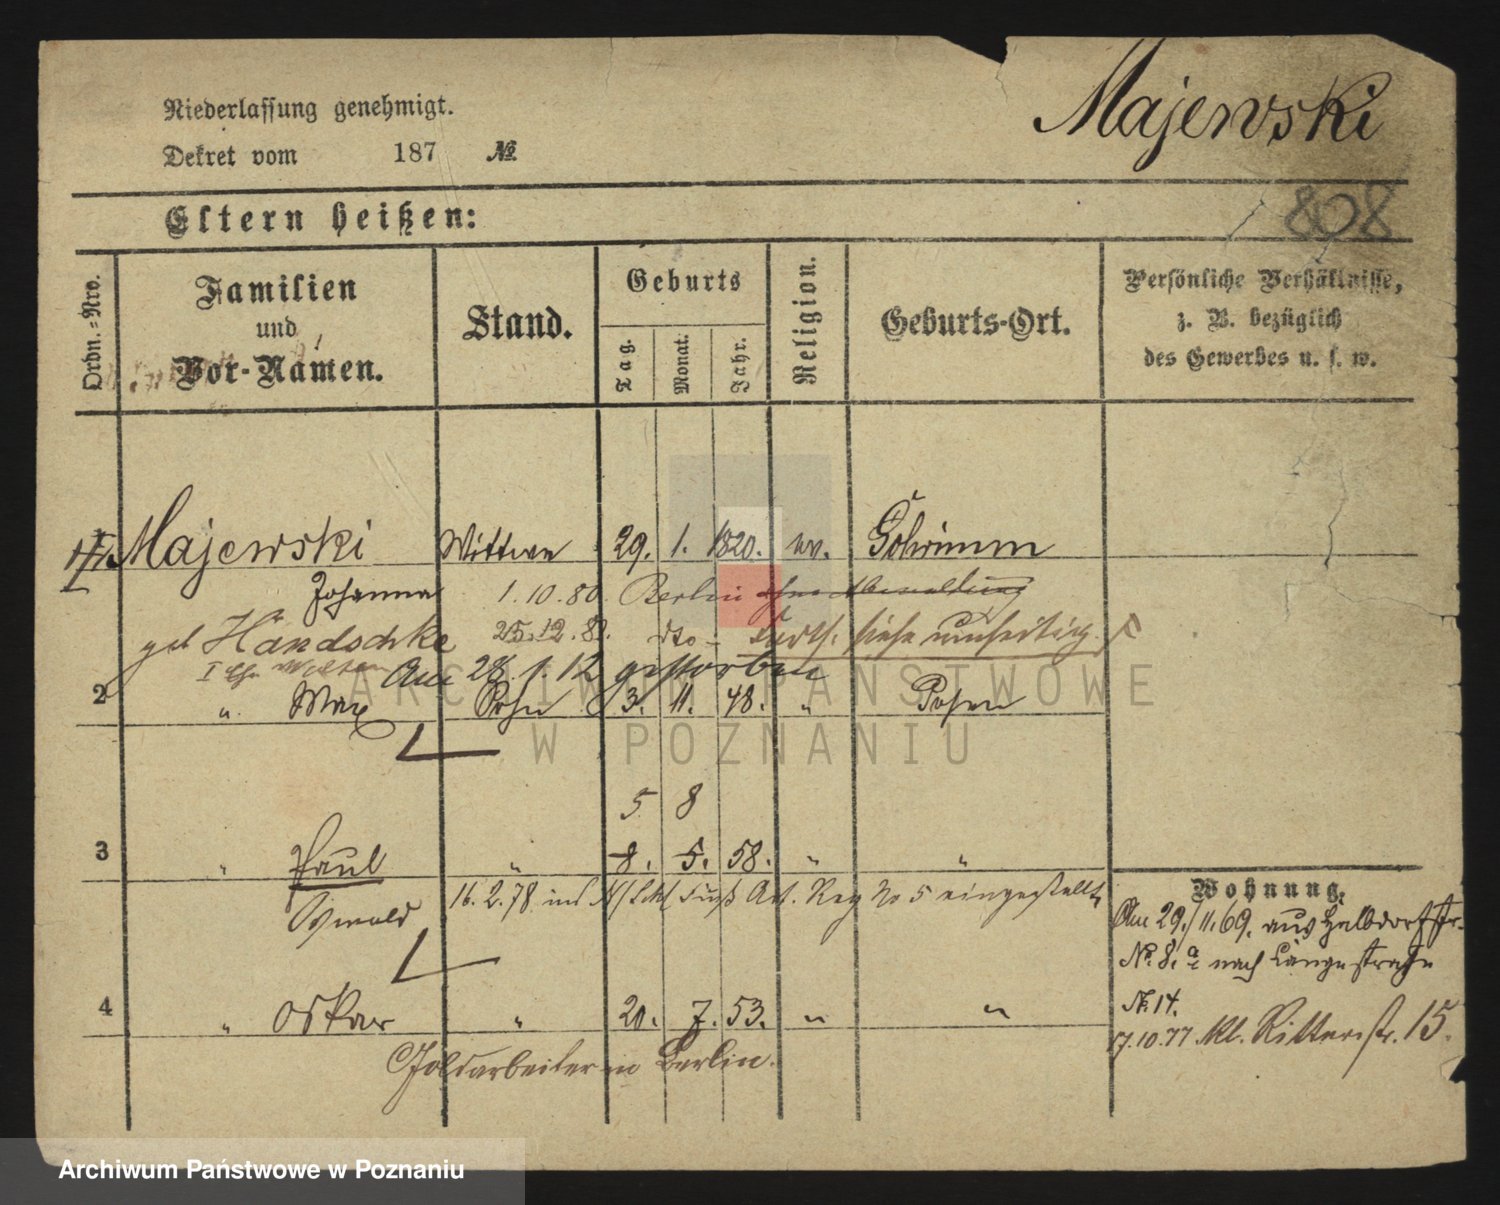 Niederlassung genehmigt.
Majewski
Dekret vom 187 №
808
Eltern heißen:
Ordn.=Nro.
Familien
und
Vor-Namen.
Stand.
Geburts
Tag.
Monat.
Jahr.
Religion.
Geburts-Ort.
Persönliche Verhältnisse,
z. B. bezüglich
des Gewerbes u. s. w.
Majewski Wittwe 29. 1. 1820. ev.
Johanna 1.10.80. Berlin
geb Handschke 25.12.8 dto - siehe umseitig.
Am 28.1.12 gestorben
2 " Max Sohn 3. 11. 48. " Posen
5 8
3 " Paul " 8. 5. 58. " "
Oswald 16.2.78 ins Fuß Art. Reg No 5 eingestellt
Wohnung.
Am 29./11.69. aus Halbdorfstr.
No. 8.a nach Langestraße
№ 14.
4 " Oskar " 20. 7. 53. " "
17.10.77. kl. Ritterstr. 15.
Goldarbeiter in Berlin.
ARCHIWUM PAŃSTWOWE
W POZNANIU
Archiwum Państwowe w Poznaniu